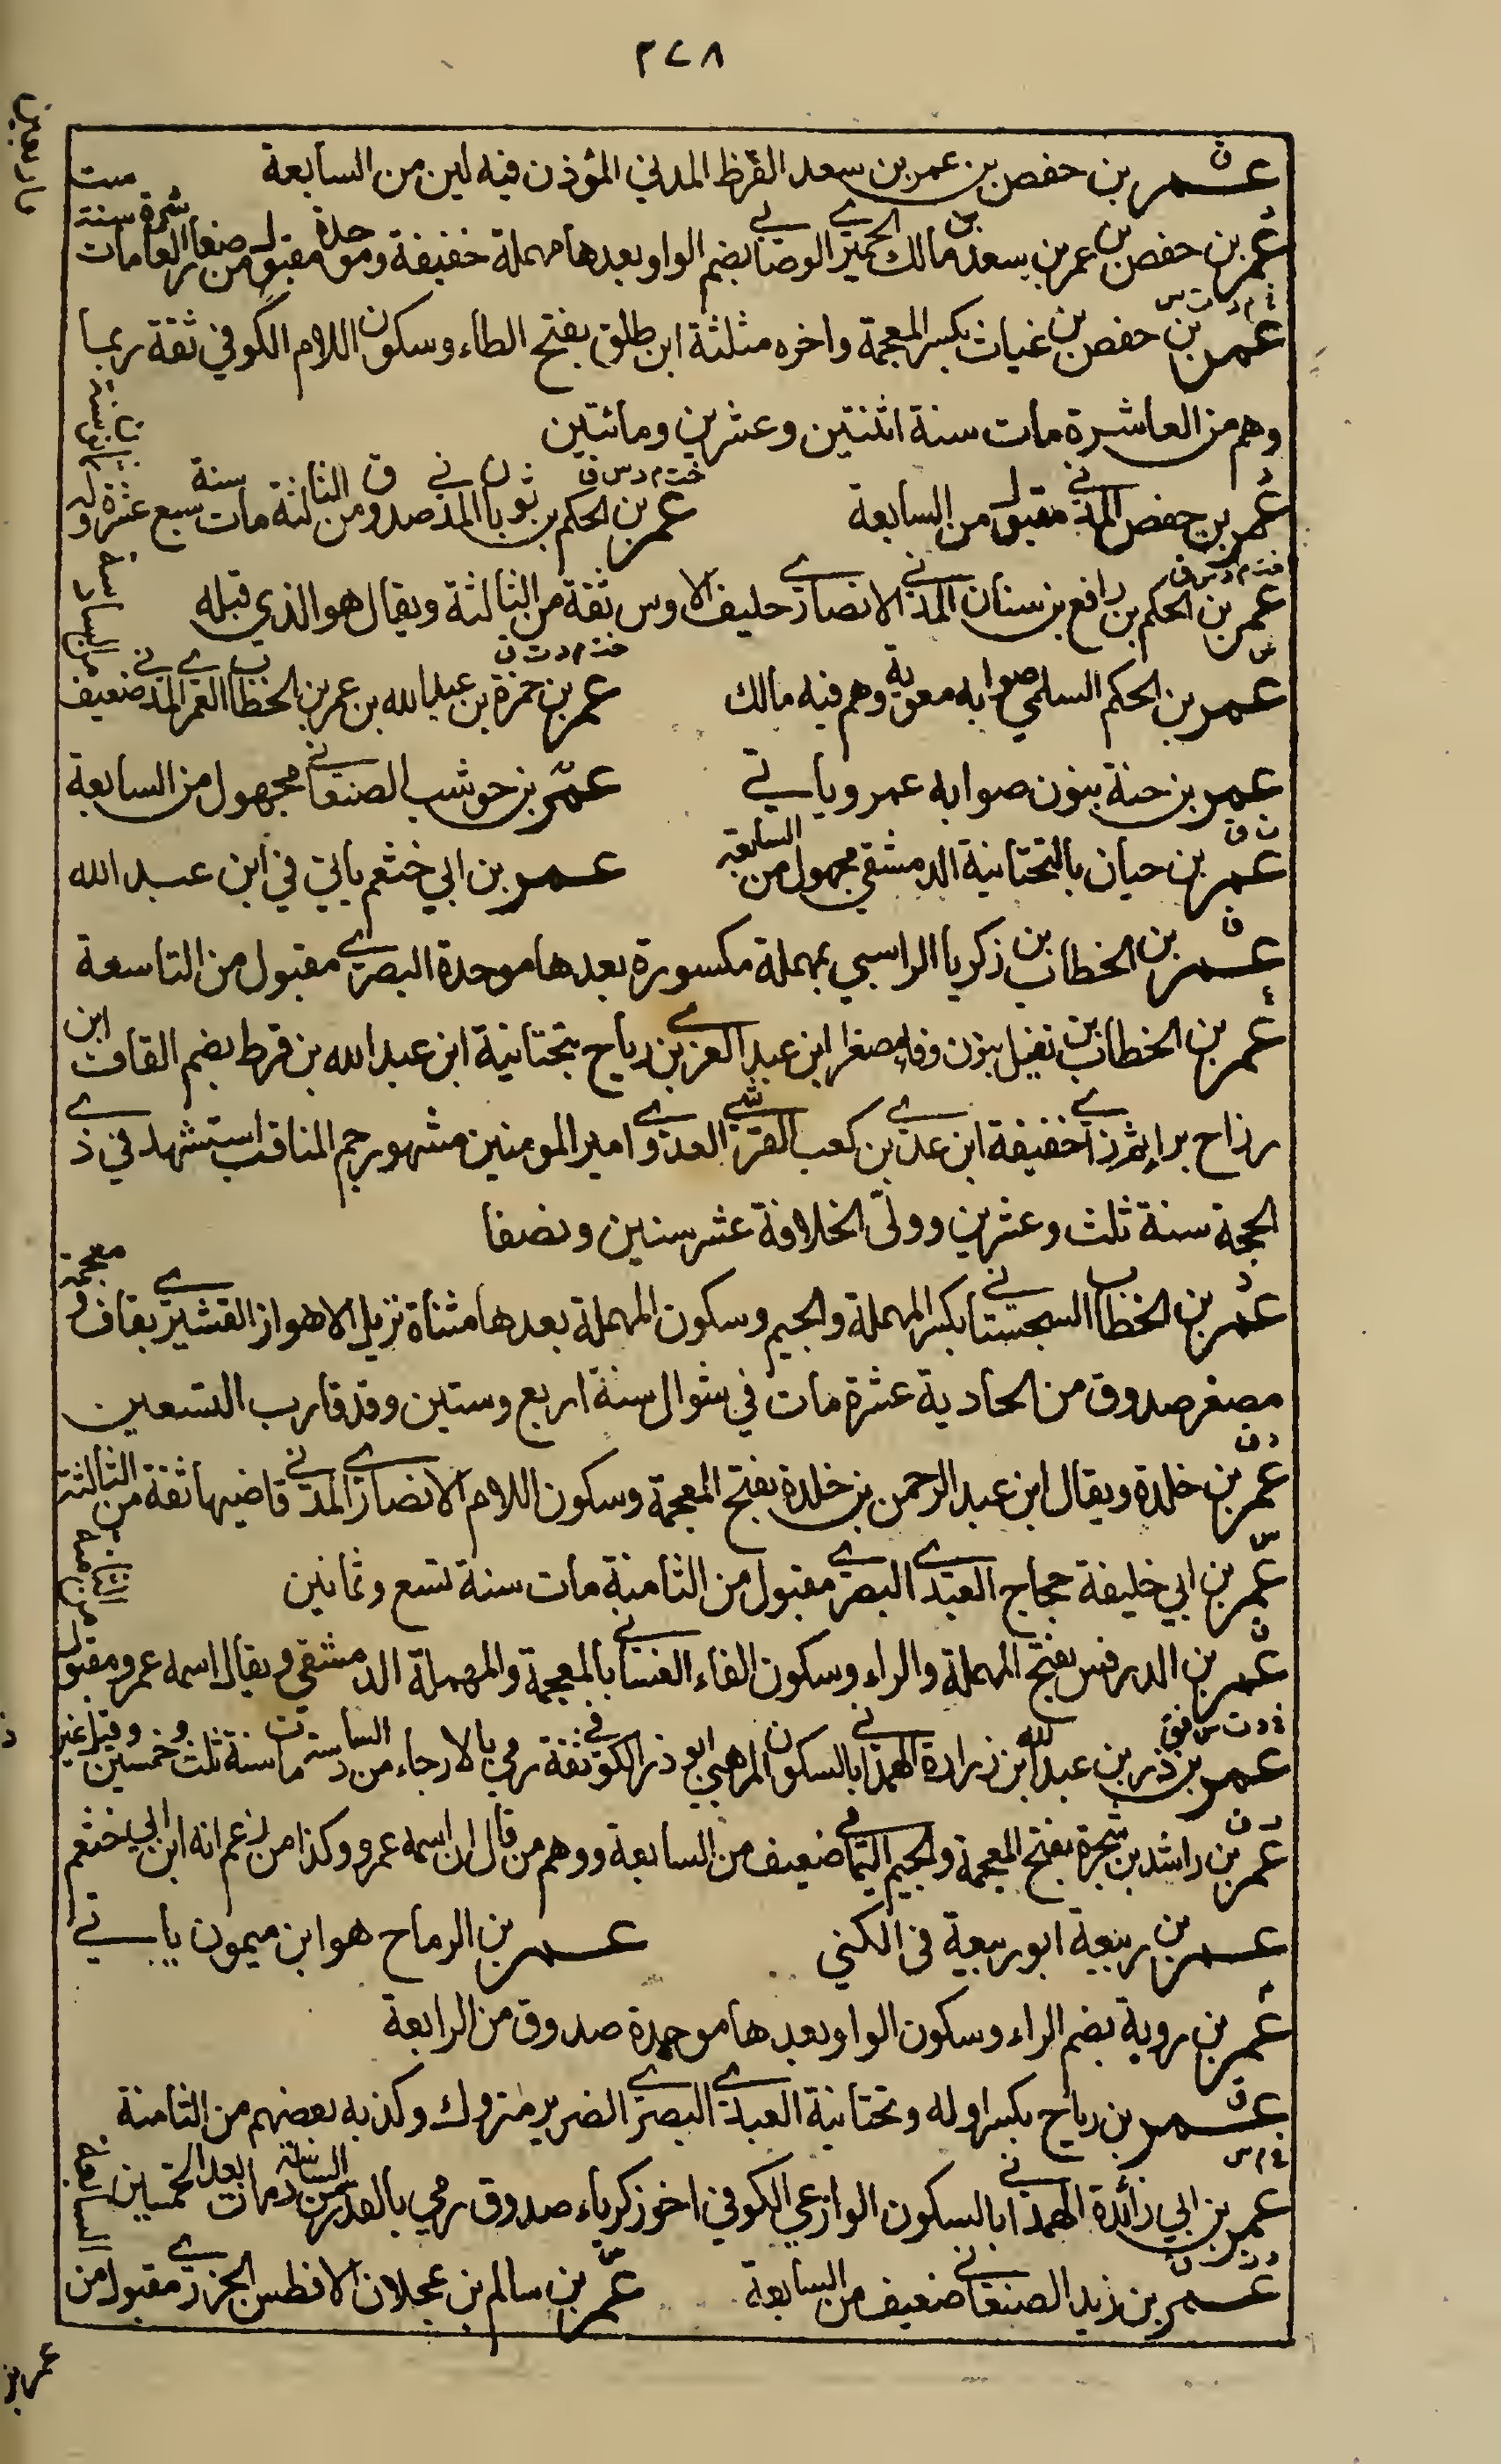 ٢٧٨
عمر بن حفص بن عمر بن سعد القرظ المدني المؤذن فيه لين من السابعة
عمر بن حفص بن عمر بن سعد بن مالك الحميري الوصابي بضم الواو بعدها مهملة خفيفة وموحدة مقبول من صغار العاشرة مات سنة ست
عمر بن حفص بن غياث بكسر المعجمة واخره مثلثة ابن طلق بفتح الطاء وسكون اللام الكوفي ثقة ربما
وهم من العاشرة مات سنة اثنتين وعشرين ومائتين
عمر بن حفص المدني مقبول من السابعة
عمر بن الحكم بن ثوبان المدني صدوق من الثالثة مات سنة سبع عشرة وله
عمر بن الحكم بن رافع بن سنان المدني الانصاري حليف الاوس ثقة من الثالثة ويقال هو الذي قبله
عمر بن الحكم السلمي صوابه معوية وهم فيه مالك
عمر بن حمزة بن عبد الله بن عمر بن الخطاب العمري المدني ضعيف
من السادسة
عمر بن حنة بنون صوابه عمرو ياتي
عمر بن حوشب الصنعاني مجهول من السابعة
عمر بن حيان بالتحتانية الدمشقي مجهول من السابعة
عمر بن ابي خثعم ياتي في ابن عبد الله
عمر بن الخطاب بن زكريا الراسبي بمهملة مكسورة بعدها موحدة البصري مقبول من التاسعة
عمر بن الخطاب بن نفيل بنون وفاء مصغرا ابن عبد العزي بن رياح بتحتانية ابن عبد الله بن قرط بضم القاف ابن
رزاح براء ثم زاي خفيفة ابن عدي بن كعب القرشي العدوي امير المومنين مشهور جم المناقب استشهد في ذي
الحجة سنة ثلث وعشرين وولي الخلافة عشر سنين ونصفا
عمر بن الخطاب السجستاني بكسر المهملة والجيم وسكون المهملة بعدها مثناة نزيل الاهواز القشيري بقاف ومعجمة
مصغر صدوق من الحادية عشرة مات في شوال سنة اربع وستين وقد قارب التسعين
عمر بن خلدة ويقال ابن عبد الرحمن بن خلدة بفتح المعجمة وسكون اللام الانصاري المدني قاضيها ثقة من الثالثة
عمر بن ابي خليفة حجاج العبدي البصري مقبول من الثامنة مات سنة تسع وثمانين
عمر بن الدرفس بفتح المهملة والراء وسكون الفاء الغساني بالمعجمة والمهملة الدمشقي ويقال اسمه عمرو مقبول
من الثامنة
عمر بن ذر بن عبد الله بن زرارة الهمداني بالسكون المرهبي ابو ذر الكوفي ثقة رمي بالارجاء من السادسة مات سنة ثلث وخمسين وقيل غير
عمر بن راشد بن شجرة بفتح المعجمة والجيم اليمامي ضعيف من السابعة ووهم من قال ان اسمه عمرو وكذا من زعم انه ابن ابي خثعم
عمر بن ربيعة ابو ربيعة في الكني
عمر بن الرماح هو ابن ميمون ياتي
عمر بن روبة بضم الراء وسكون الواو بعدها موحدة صدوق من الرابعة
عمر بن رياح بكسر اوله وتحتانية العبدي البصري الضرير متروك وكذبه بعضهم من الثامنة
عمر بن ابي زائدة الهمداني بالسكون الوادعي الكوفي اخو زكرياء صدوق رمي بالقدر من السادسة مات بعد الخمسين
عمر بن زيد الصنعاني ضعيف من السابعة
عمر بن سالم بن عجلان الافطس الجزري مقبول من
السابعة
عمر بن